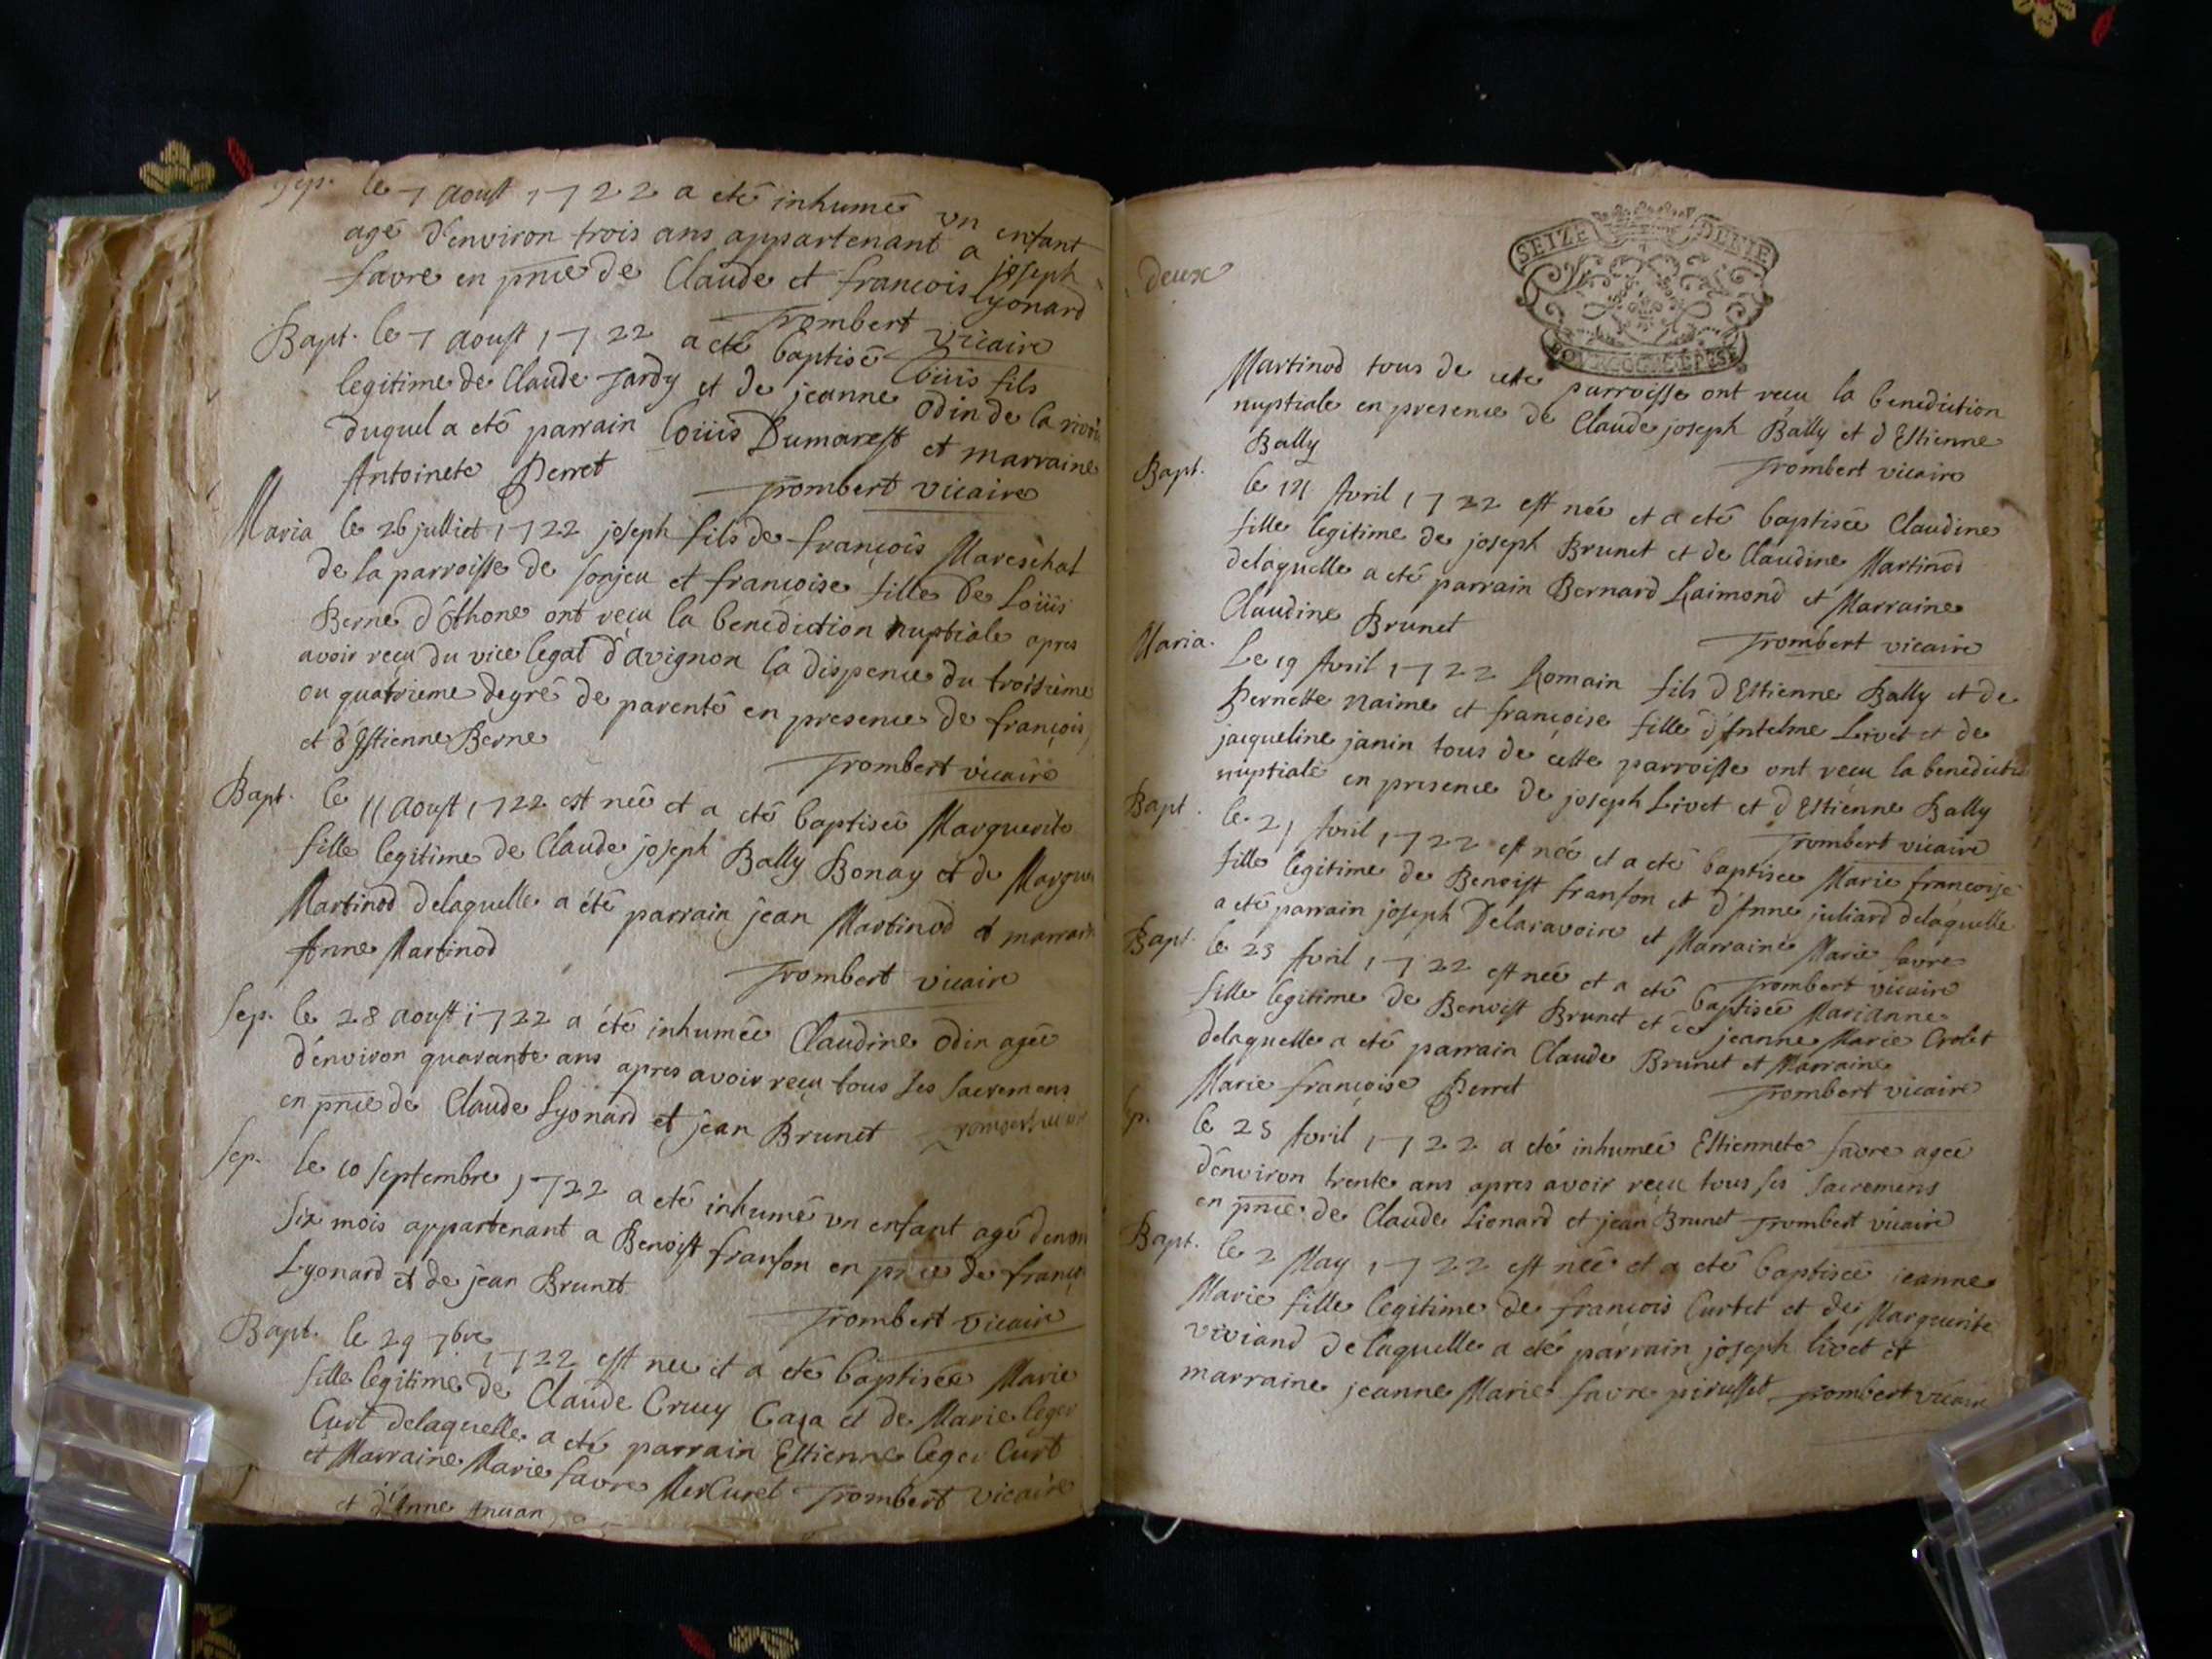 Sep. le 7 aoust 1722 a eté inhumé un enfant
agé d'environ trois ans appartenant a joseph
favre en pnce de Claude et francois Lyonard
Trombert vicaire
Bapt. le 7 aoust 1722 a eté baptisé loüis fils
legitime de Claude Tardy et de jeanne odin de la
duquel a eté parrain loüis Dumarest et marraine
Antoinete Perret
Trombert vicaire
Maria le 26 julliet 1722 joseph fils de françois Mareschal
de la parroisse de sonjeu et francoise fille de Loüis
Berne d'Othone ont reçu la benediction nuptiale apres
avoir reçu du vice legat d'avignon la dispence du troisieme
ou quatrieme degré de parenté en presence de françois
et d'Estienne Berne
Trombert vicaire
Bapt. le 11 aoust 1722 est neé et a eté baptiseé Marguerite
fille legitime de Claude joseph Bally Bonay et de
Martinod delaquelle a été parrain jean Martinod et
Anne Martinod
Trombert vicaire
Sep. le 28 aoust 1722 a été inhumée Claudine odin ageé
d'environ quarante ans apres avoir reçu tous ses sacremens
en pnce de Claude Lyonard et jean Brunet
Sep. le 10 septembre 1722 a eté inhumé un enfant agé
six mois appartenant a Benoist franson en pnce de
Lyonard et de jean Brunet
Trombert vicaire
Bapt. le 29 7bre 1722 est neé et a eté baptisée Marie
fille legitime de Claude Cruey Caza et de Marie leger
Curt delaquelle a eté parrain Estienne leger Curt
et Marraine Marie favre MerCuret Trombert vicaire
et d'Anne
deux
SEIZE DENIE
Martinod tous de cette parroisse ont reçu la benediction
nuptiale en presence de Claude joseph Bally et d'Estienne
Bally
Trombert vicaire
Bapt. le Avril 1722 est neé et a eté baptiseé Claudine
fille legitime de joseph Brunet et de Claudine Martinod
delaquelle a eté parrain Bernard Raimond et Marraine
Claudine Brunet
Trombert vicaire
Maria. Le 19 Avril 1722 Romain fils d'Estienne Bally et de
Pernette naime et françoise fille d'Antelme Livet et de
jacqueline janin tous de cette parroisse ont reçu la
nuptiale en presence de joseph Livet et d'Estienne Bally
Trombert vicaire
Bapt. le 21 Avril 1722 est neé et a eté baptisee Marie françoise
fille legitime de Benoist franson et d'Anne juliard delaquelle
a eté parrain joseph Delaravoire et Marraine Marie favre
Trombert vicaire
Bapt. le 23 Avril 1722 est neé et a eté baptiseé Marianne
fille legitime de Benoist Brunet et de jeanne Marie Crolet
delaquelle a eté parrain Claude Brunet et Marraine
Marie françoise Perret
Trombert vicaire
le 25 Avril 1722 a eté inhumeé Estiennete favre ageé
d'environ trente ans apres avoir reçu tous ses sacremens
en pnce de Claude Lionard et jean Brunet Trombert vicaire
Bapt. le 2 May 1722 est neé et a eté baptiseé jeanne
Marie fille legitime de françois Curtet et de Marguerite
viviand delaquelle a eté parrain joseph livet et
marraine jeanne Marie favre pirusset Trombert vicaire